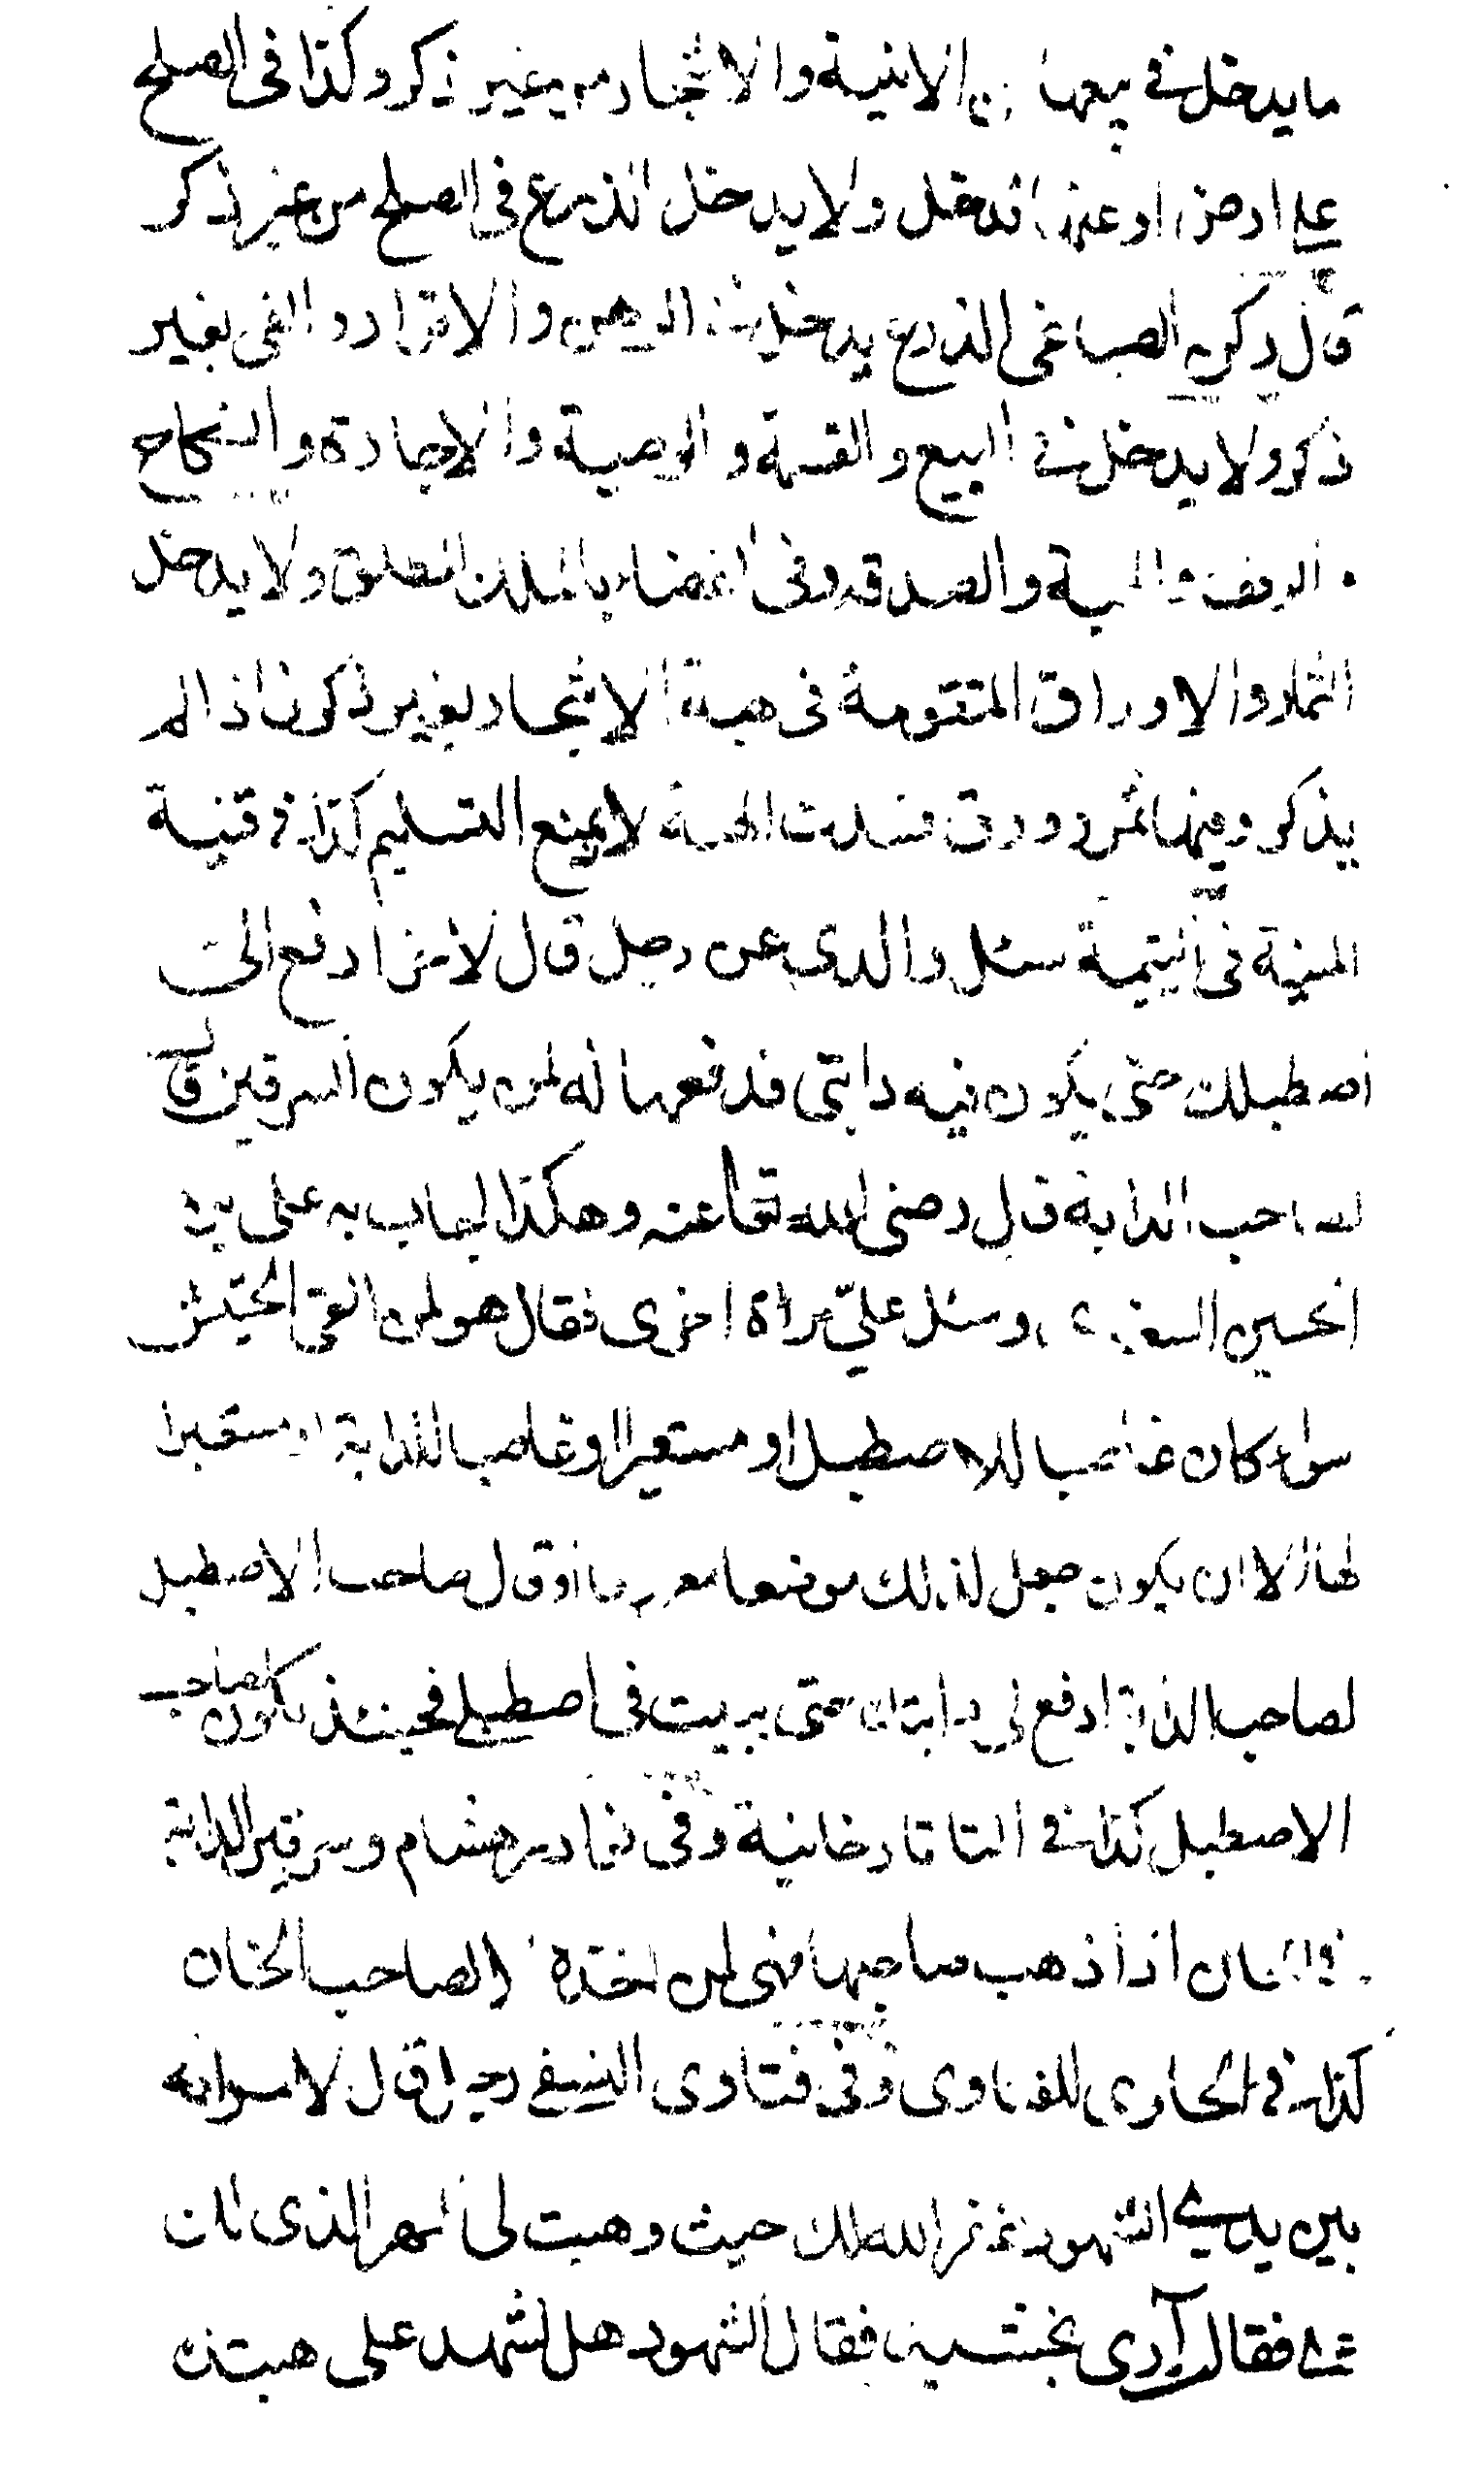 ما يدخل في بيعها من الابنية والاشجار من غير ذكر وكذا في الصلح
على ارض او عنها تدخل ولا يدخل الزرع في الصلح من غير ذكر
قال ركن الصباغي الزرع يدخل في الرهن والاقرار والفئ بغير
ذكر ولا يدخل في البيع والقسمة والوصية والاجارة والنكاح
والوقف والهبة والصدقة وفي القضاء بالملك المطلق ولا يدخل
الثمار والاوراق المتقومة في هبة الاشجار بغير ذكر فاذا لم
يذكر وفيها ثمر وورق فسدت الهبة لا يمنع التسليم كذا في قنية
المنية في اليتيمة سئل والدي عن رجل قال لاخر ادفع الي
اصطبلك حتى يكون فيه دابتي فدفعها له لمن يكون السرقين قال
لصاحب الدابة قال رضي الله تعا عنه وهكذا اجاب به علي بن
الحسين السغدي وسئل علي مراة اخرى فقال هو لمن القى الحشيش
سواء كان غاصبا للاصطبل او مستعيرا او غاصبا للدابة او مستعيرا
لها الا ان يكون جعل لذلك موضعا معروفا او قال صاحب الاصطبل
لصاحب الدابة ادفع لي دابتك حتى يبيت في اصطبلي فحينئذ يكون لصاحب
الاصطبل كذا في التاتارخانية وفي نوادر هشام وسرقين الدابة
في الخان اذا ذهب صاحبها فهي لمن اخذه لا لصاحب الخان
كذا في الحاوي للفتاوى وفي فتاوى النسفي رجل قال لامراته
بين يدي الشهود غفر الله لك حيث وهبت لي المهر الذي كان
علي فقال آرى بخشيدم فقال الشهود هل نشهد على هبتك